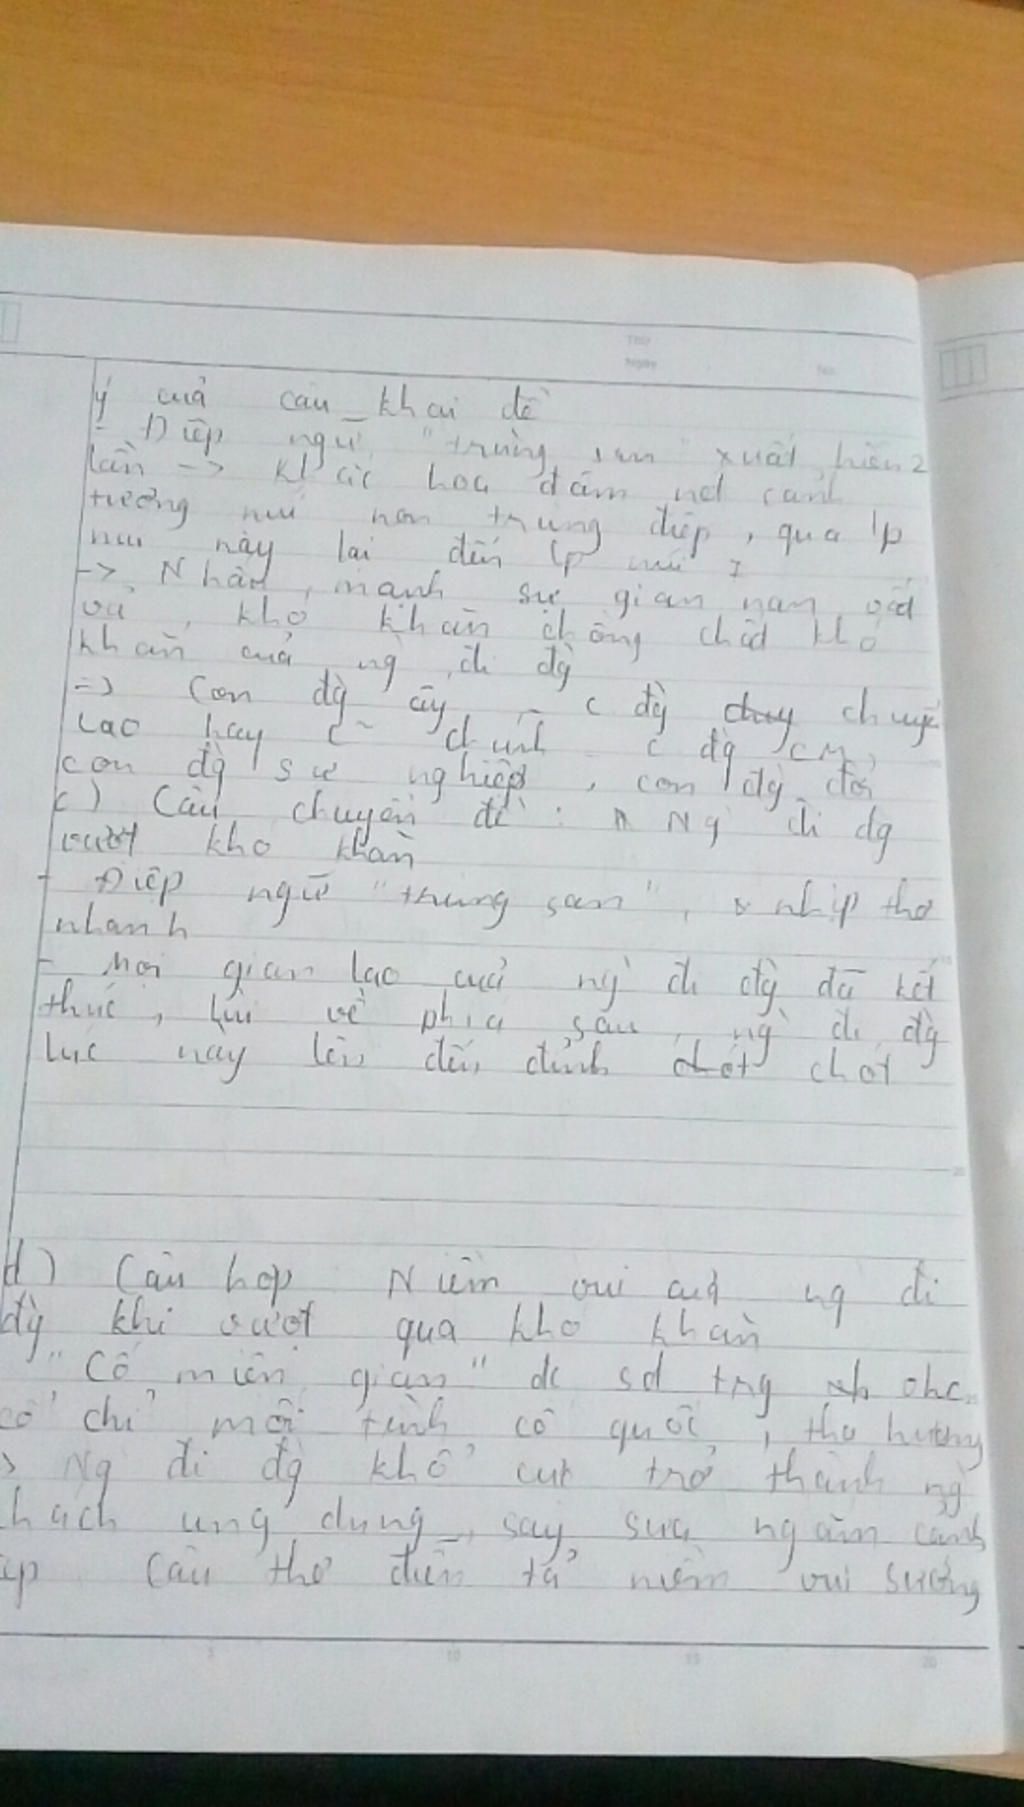 Thứ
Ngày
No.
ý của câu khai đề
- Điệp ngữ "trùng san" xuất hiện 2
lần -> Khắc hoạ đậm nét cảnh
tượng núi non trùng điệp, qua lp
núi này lại đến lp núi
-> Nhấn mạnh sự gian nan, vất
vả, khó khăn chồng chất khó
khăn của ng đi đg
=> Con đg ấy c đg chuyể
lao hay c chính c đg CM,
con đg sự nghiệp, con đg đời
c) Câu chuyển đề: Ng đi đg
vượt khó khăn
- Điệp ngữ "trùng san", nhịp thơ
nhanh
- Mọi gian lao của ng đi đg đã kết
thúc, lùi về phía sau, ng đi đg
lúc này lên đến đỉnh chót chót
d) Câu hợp Niềm vui của ng đi
đg khi vượt qua khó khăn
"Cố miện gian" dc sd trg
cố chỉ mối tình cố quốc, tha hương
> Ng đi đg khổ cực trở thành ng
hách ung dung, say sưa ngắm cảnh
ẹp Câu thơ diễn tả niềm vui sướng
5 10 15 20